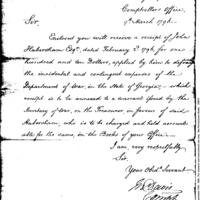 Comptrollers Office,
9th March 1796.
Sir,
Enclosed you will receive a receipt of John
Habersham Esqr. dated February 2d. 1796 for one
hundred and ten Dollars, applied by him to defray
the incidental and contingent expences of the
Department of War, in the State of Georgia; which
receipt is to be annexed to a warrant issued by the
Secretary of War, on the Treasurer, in favour of said
Habersham, who is to be charged and held account-
able for the same, in the Books of your Office.
I am, very respectfully
Sir,
Your Obdt. Servant
Jn. Davis